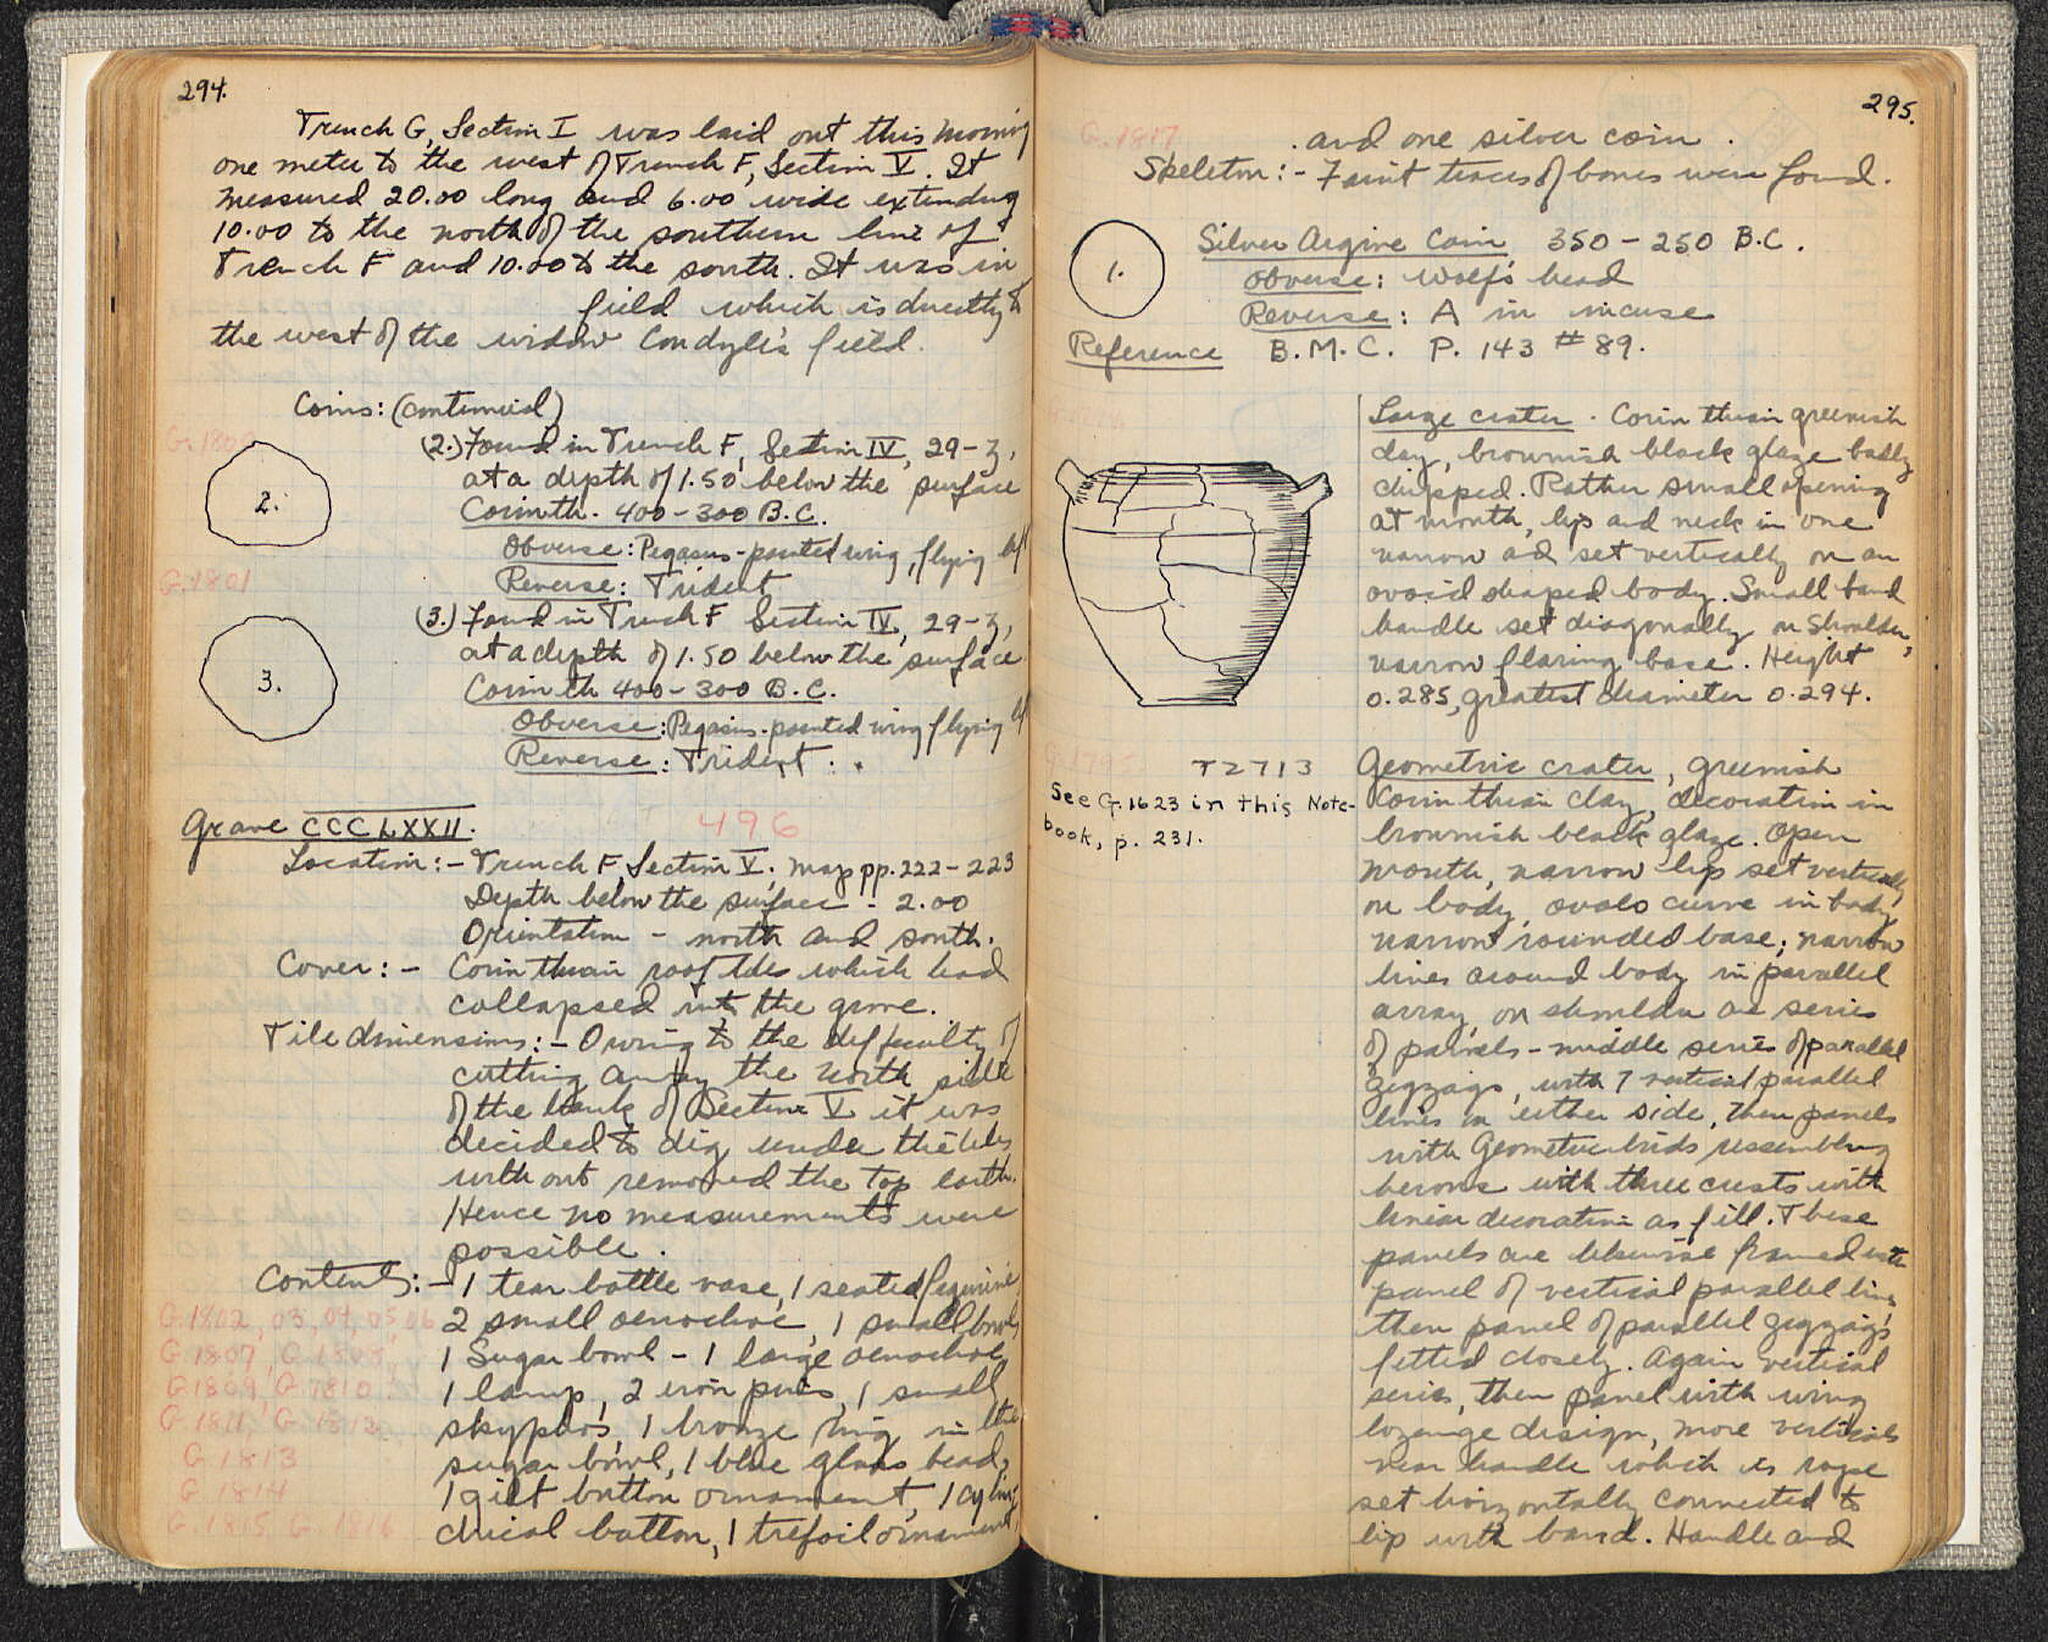 294.
Trench G, Section I was laid out this morning
one meter to the west of Trench F, Section V. It
measured 20.00 long and 6.00 wide extending
10.00 to the north of the southern line of
Trench F and 10.00 to the south. It was in
field which is directly to
the west of the widow Condyli's field.
Coins: (continued)
G.1800
2.
(2.) Found in Trench F, Section IV, 29-3,
at a depth of 1.50 below the surface
Corinth. 400-300 B.C.
Obverse: Pegasus-pointed wing, flying left
Reverse: Trident
G.1801
3.
(3.) Found in Trench F Section IV, 29-3,
at a depth of 1.50 below the surface
Corinth 400-300 B.C.
Obverse: Pegasus-pointed wing flying left
Reverse: Trident.
Grave CCCLXXII. 496
Location:- Trench F, Section V; map pp. 222-223
Depth below the surface - 2.00
Orientation - north and south.
Cover:- Corinthian roof tiles which had
collapsed into the grave.
Tile dimensions:- Owing to the difficulty of
cutting away the north side
of the bank of Section V it was
decided to dig under the tiles
without removed the top earth.
Hence no measurements were
possible.
Contents:- 1 tear bottle vase, 1 seated figurine
G.1802, 03, 04, 05, 06 2 small oenochoe, 1 small bowl,
G.1807, G.1808, 1 Sugar bowl - 1 large oenochoe,
G.1809, G.1810 1 lamp, 2 iron pins, 1 small
G.1811, G.1812 skyphos, 1 bronze ring in the
G.1813 sugar bowl, 1 blue glass bead,
G.1814 1 gilt button ornament, 1 cylin-
G.1815, G.1816 drical button, 1 trefoil ornament
295.
G.1817 and one silver coin.
Skeleton:- Faint traces of bones were found.
1.
Silver Argive Coin, 350-250 B.C.
Obverse: Wolf's head
Reverse: A in incuse
Reference B.M.C. P. 143 # 89.
Large crater. Corinthian greenish
clay, brownish black glaze badly
chipped. Rather small opening
at mouth, lip and neck in one
narrow and set vertically on an
ovoid shaped body. Small band
handle set diagonally on shoulder,
narrow flaring base. Height
0.285, greatest diameter 0.294.
G.1795
T2713
See G.1623 in this Note-
book, p. 231.
Geometric crater, greenish
Corinthian clay, decoration in
brownish black glaze. Open
mouth, narrow lip set vertically
on body, ovalo curve in body
narrow rounded base; narrow
lines around body in parallel
array, on shoulder are series
of pannels - middle series of parallel
zigzags, with 7 vertical parallel
lines on either side, then panels
with Geometric birds resembling
herons with three crests with
linear decoration as fill. These
panels are likewise framed with
panel of vertical parallel lines
then panel of parallel zigzags
fitted closely. Again vertical
series, then panel with wing
lozenge design, more verticals
near handle which is rope
set horizontally connected to
lip with band. Handle and